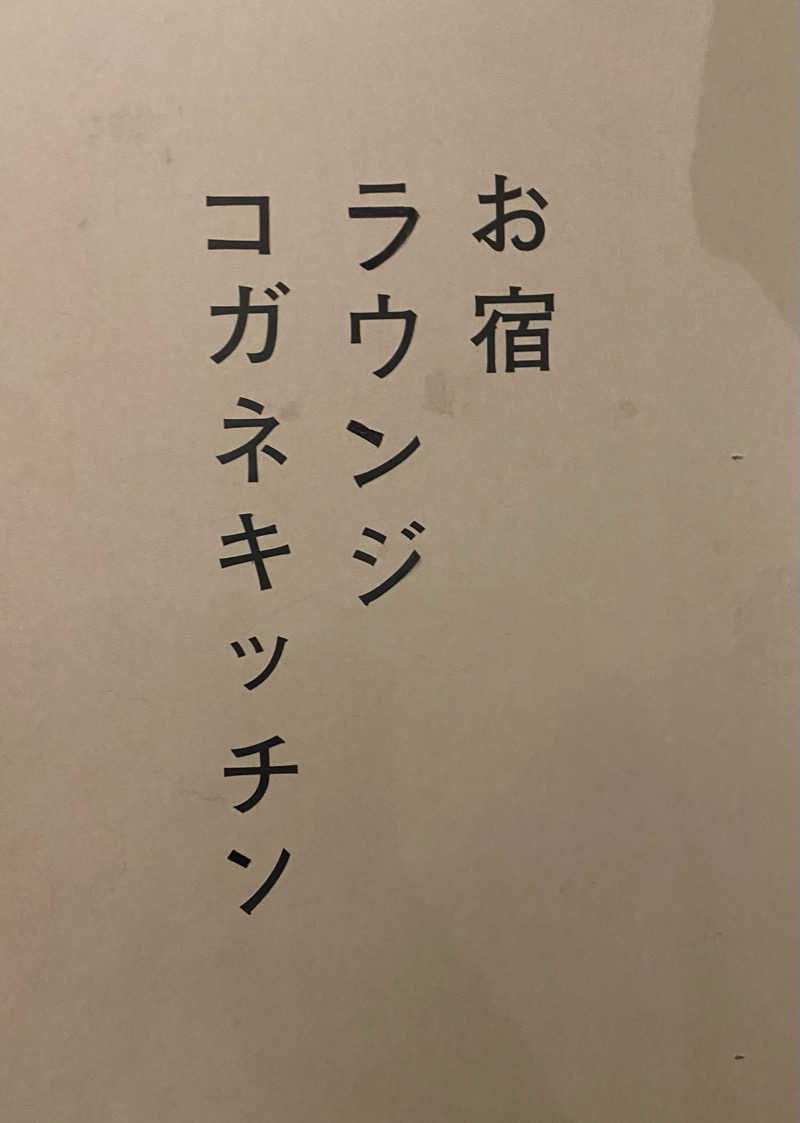 お宿
ラウンジ
コガネキッチン